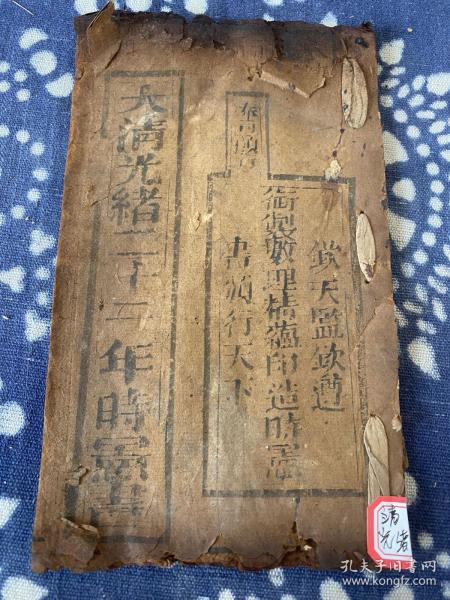 欽天監欽遵
御製數理精蘊印造時憲
書頒行天下
大清光緒二十二年時憲書
清
光绪
孔夫子旧书网
www.kongfz.com